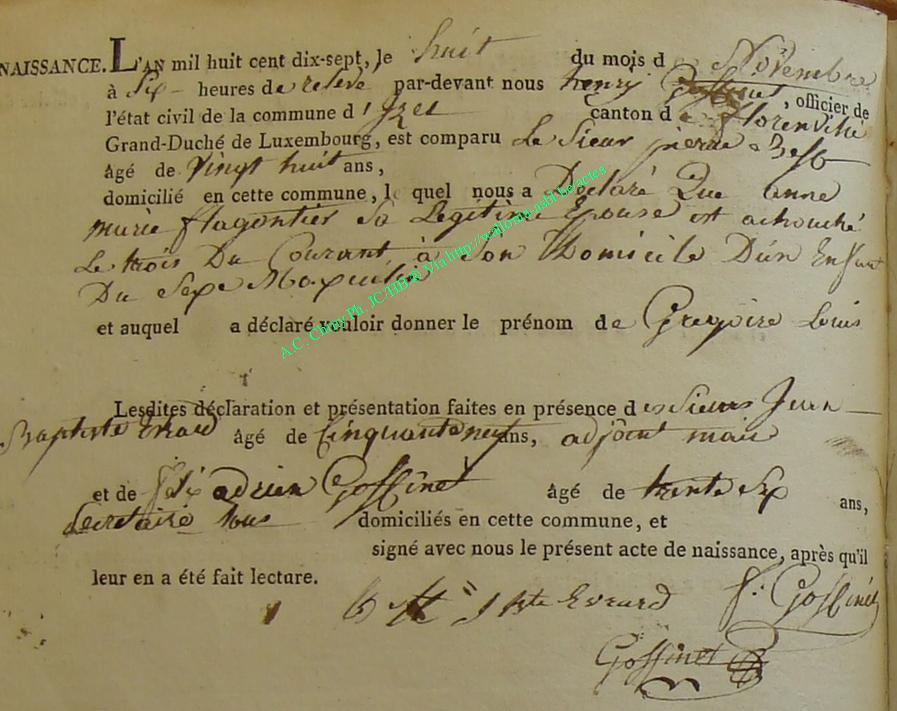 NAISSANCE. L'AN mil huit cent dix-sept, le huit du mois de Novembre
à Six heures de relevé par-devant nous henry Goffinet, officier de
l'état civil de la commune d'Izel canton de florenville
Grand-Duché de Luxembourg, est comparu Le Sieur pierre
âgé de Vingt huit ans,
domicilié en cette commune, lequel nous a Declaré Que anne
marie flagontier Sa Legitime Epouse est achouché
Le trois Du Courant à Son Domicile D'un Enfant
Du Sexe Masculin
et auquel a déclaré vouloir donner le prénom de Gregoire Louis
Lesdites déclaration et présentation faites en présence des Sieurs Jean
Baptiste Evrard âgé de Cinquante neuf ans, adjoint maire
et de adrien Goffinet âgé de trente Six ans,
Secretaire tous domiciliés en cette commune, et
signé avec nous le présent acte de naissance, après qu'il
leur en a été fait lecture.
J Bte Evrard f. Goffinet
Goffinet
A.C. Chiny Ph. JC/HB@ Via http://wallonia.asbl.be/actes